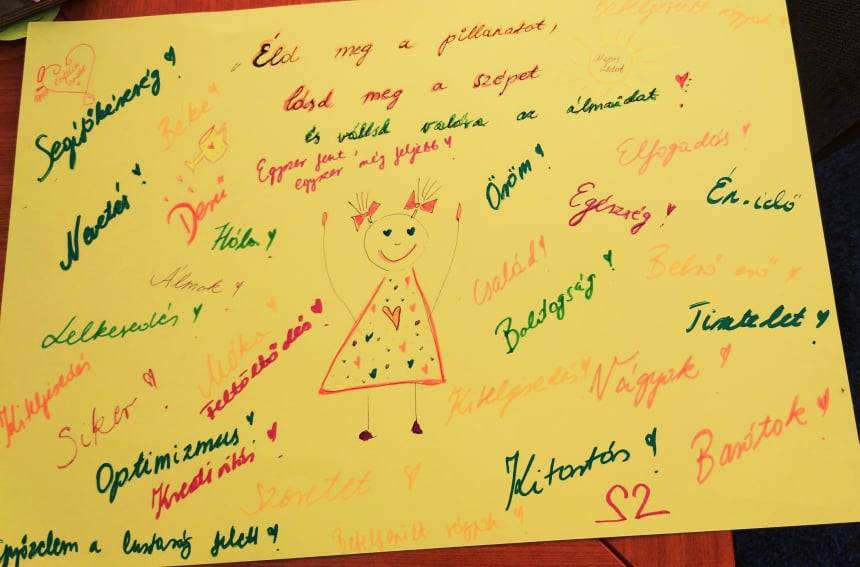 „Éld meg a pillanatot,
lásd meg a szépet
és váltsd valóra az álmaidat
Egyszer fent,
egyszer még feljebb!
Segítőkészség
Béke
Nevetés
Derű
Öröm
Elfogadás
Egészség
Én-idő
Hála
Álmok
Család
Belső erő
Lelkesedés
Boldogság
Tisztelet
Kiteljesedés
Siker
Móka
Feltöltődés
Kiteljesedés
Vágyak
Optimizmus
Kreativitás
Szeretet
Kitartás
Barátok
S2
győzelem a lustaság felett